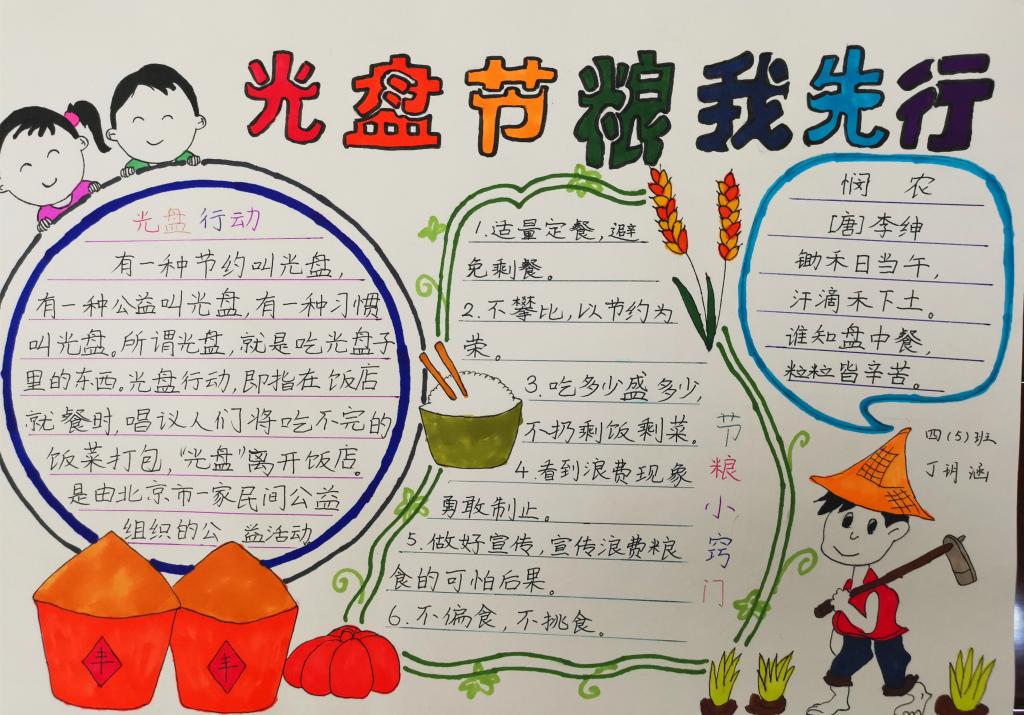 光盘节粮我先行
光盘行动
有一种节约叫光盘，
有一种公益叫光盘，有一种习惯
叫光盘。所谓光盘，就是吃光盘子
里的东西。光盘行动，即指在饭店
就餐时，唱议人们将吃不完的
饭菜打包，“光盘”离开饭店。
是由北京市一家民间公益
组织的公益活动
1.适量定餐，避
免剩餐。
2.不攀比，以节约为
荣。
3.吃多少盛多少，
不扔剩饭剩菜。
4.看到浪费现象
勇敢制止。
5.做好宣传，宣传浪费粮
食的可怕后果。
6.不偏食，不挑食。
节粮小窍门
悯农
[唐]李绅
锄禾日当午，
汗滴禾下土。
谁知盘中餐，
粒粒皆辛苦。
四(5)班
丁玥涵
丰
丰